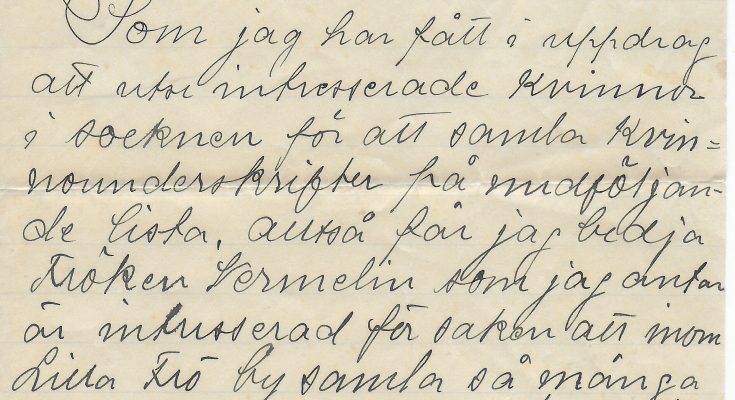 Som jag har fått i uppdrag
att utse intresserade kvinnor
i socknen för att samla kvin=
nounderskrifter på medföljan-
de lista, alltså får jag bedja
Fröken Vermelin som jag antar
är intresserad för saken att inom
Lilla Frö by samla så många